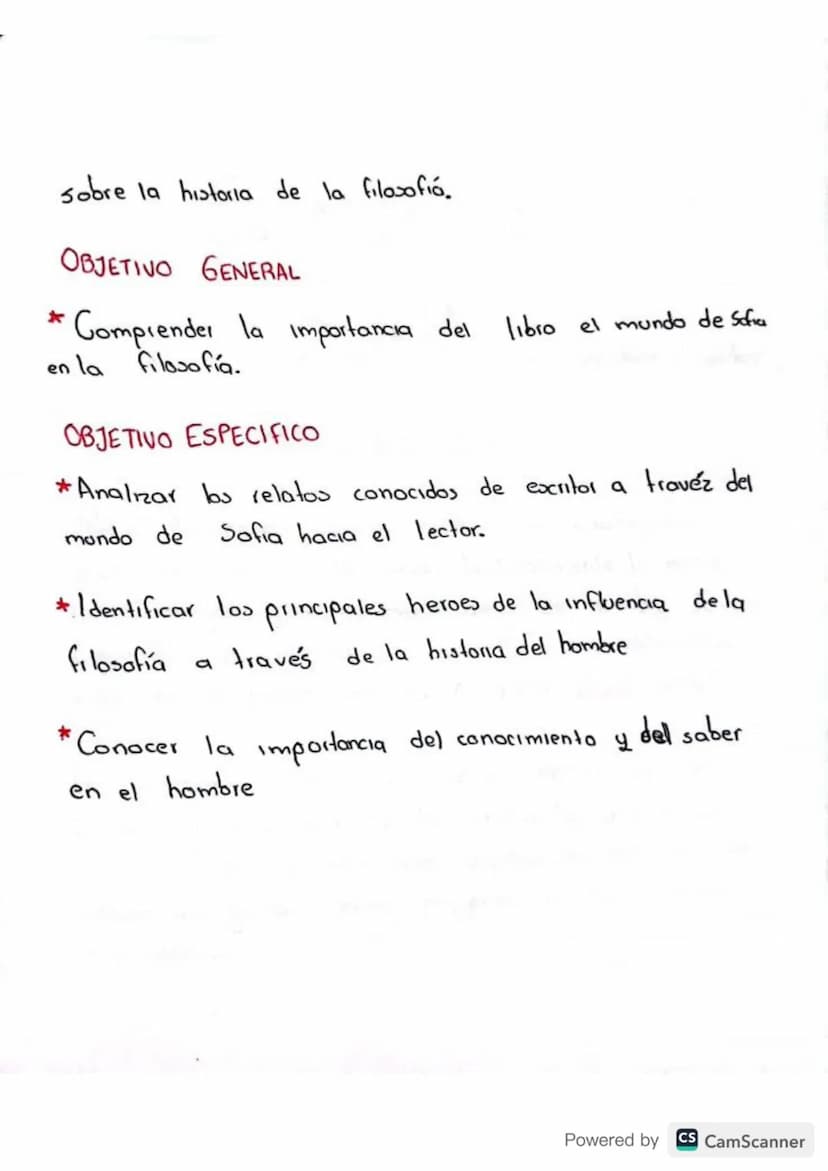 sobre la historia de la filosofiá.
OBJETIVO GENERAL
* Comprender la importancia del libro el mundo de Sofia
en la filosofía.
OBJETIVO ESPECIFICO
* Analizar los relatos conocidos de escritor a travéz del
mundo de Sofia hacia el lector.
* Identificar los principales heroes de la influencia de la
filosofía a través de la historia del hombre
* Conocer la importancia del conocimiento y del saber
en el hombre
Powered by CS CamScanner